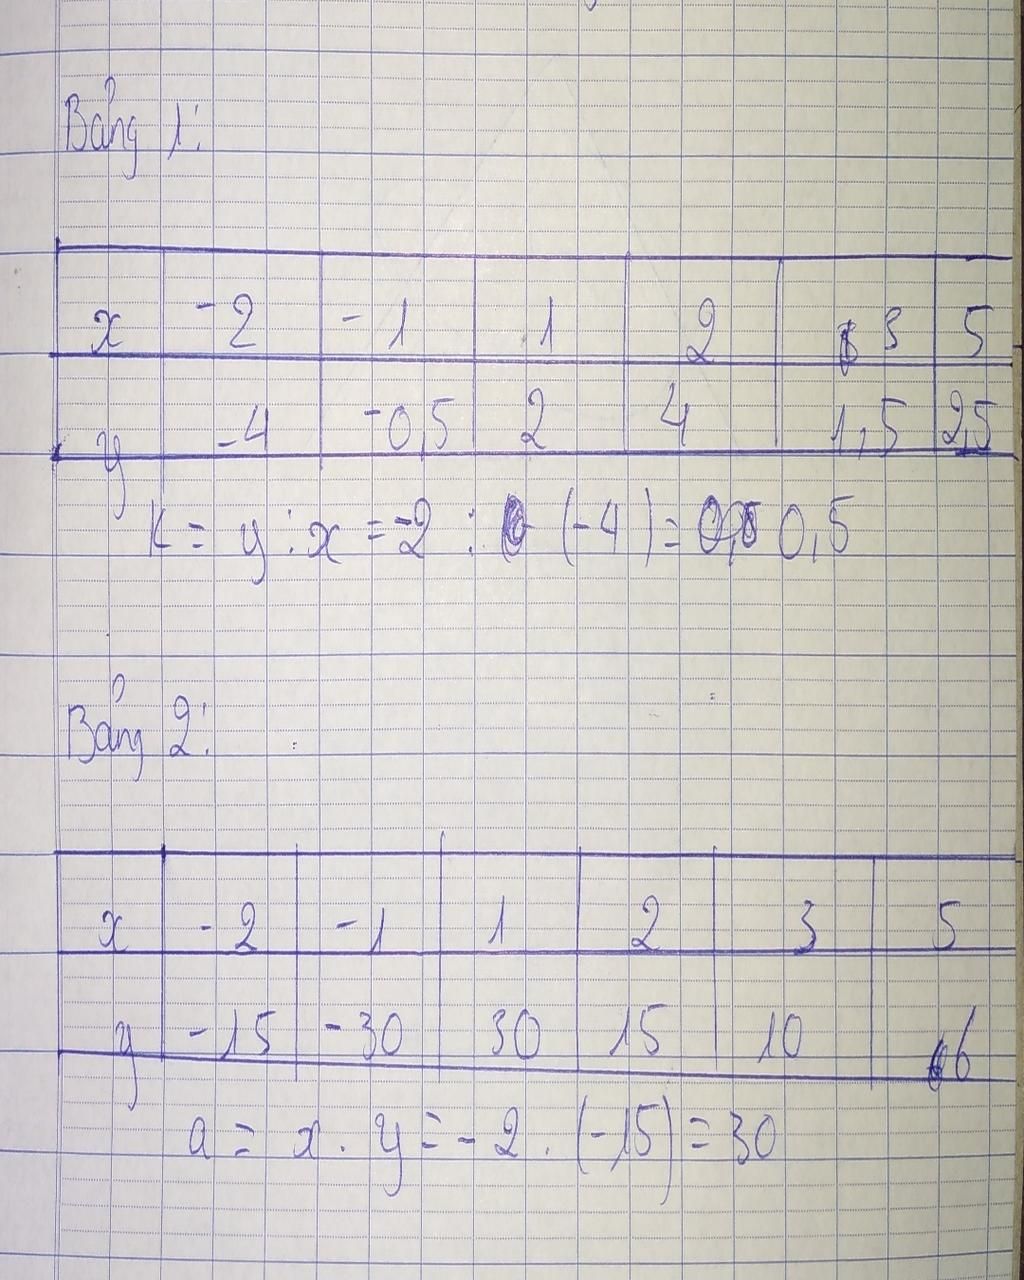 Bảng 1:
x -2 -1 1 2 3 5
y -4 -0,5 2 4 1,5 2,5
K = y : x = -2 : (-4) = 0,5
Bảng 2:
x -2 -1 1 2 3 5
y -15 -30 30 15 10 6
a = x . y = -2 . (-15) = 30